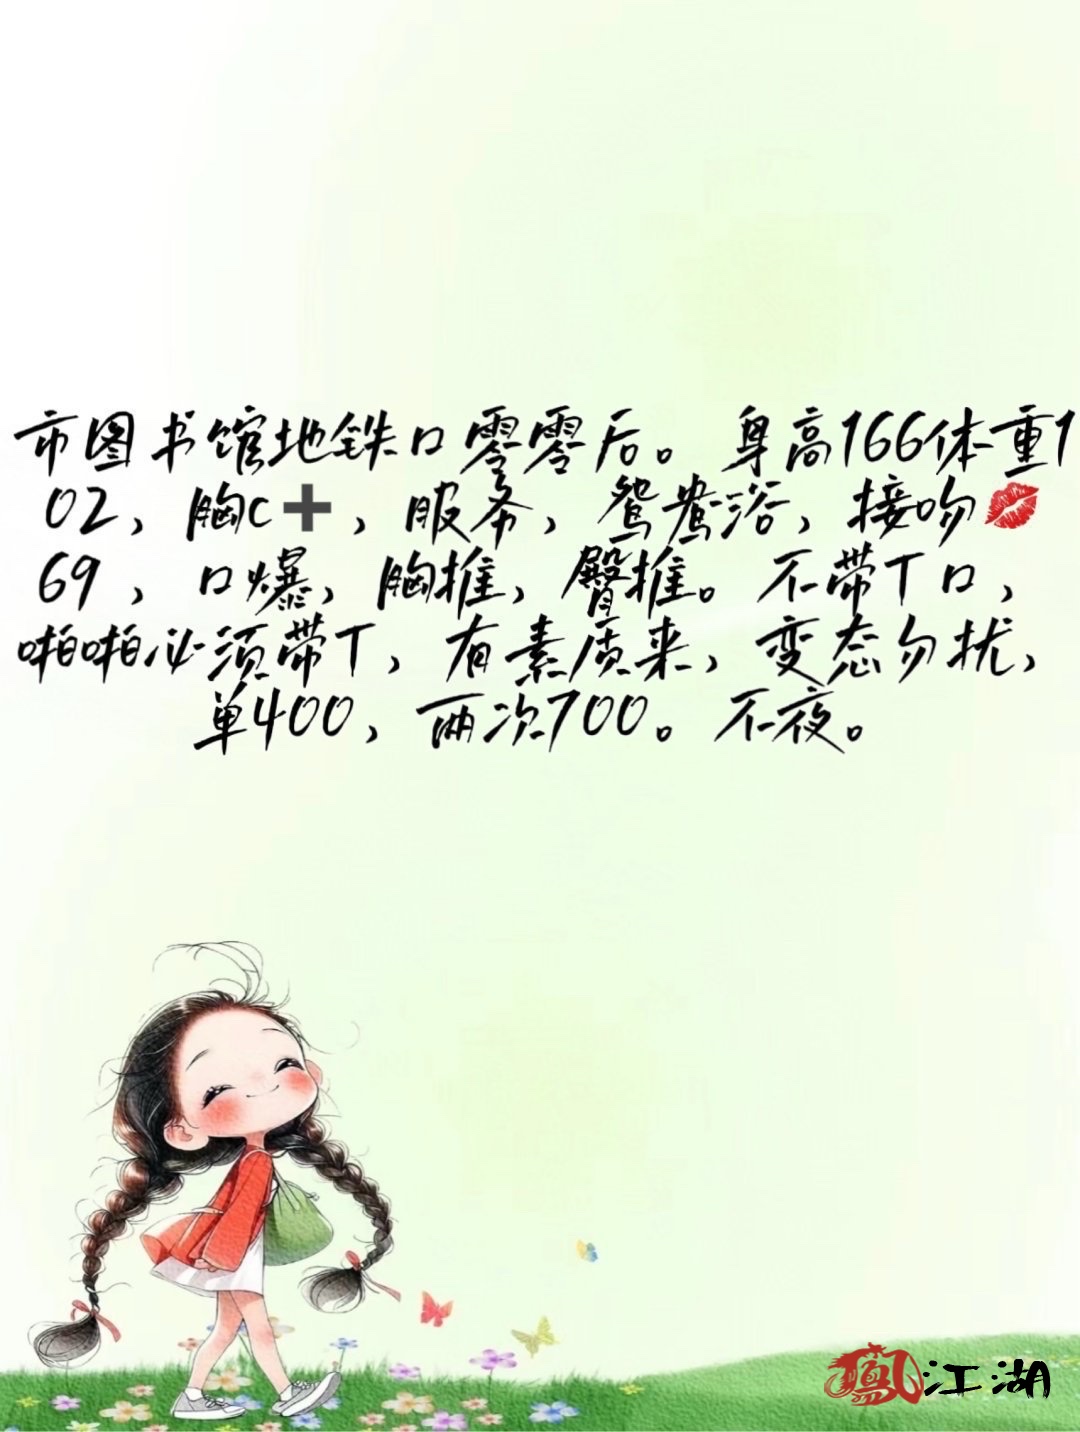 市图书馆地铁口零零后。身高166体重1
02，胸c➕，服务，鸳鸯浴，接吻💋
69，口爆，胸推，臀推。不带T口，
啪啪必须带T，有素质来，变态勿扰，
单400，两次700。不夜。
鳳江湖